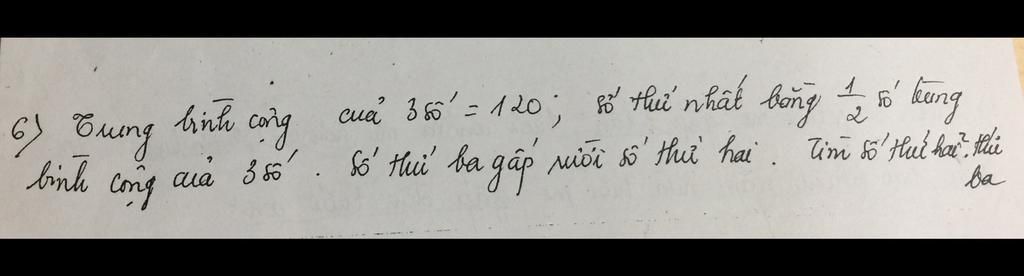 6) Trung bình cộng của 3 số = 120; số thứ nhất bằng 1/2 số trung
bình cộng của 3 số. Số thứ ba gấp rưỡi số thứ hai. Tìm số thứ hai?. thứ
ba